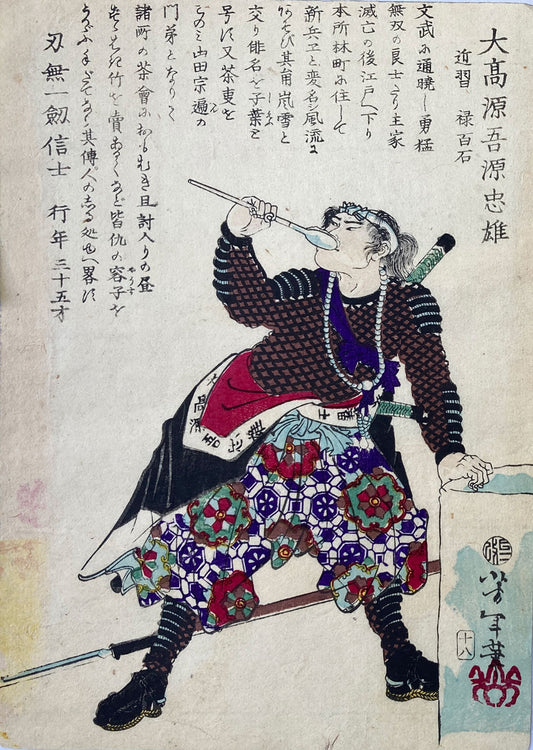 大高源吾源忠雄
近習　禄百石
文武に通暁し勇猛
無双の良士たり主家
滅亡の後江戸へ下り
本所林町に住して
新兵衛と変名し風流に
あそび其角嵐雪と
交り俳名を子葉と
号に又茶事を
山田宗遍の
門弟となりて
諸所の茶會におもむき且討入りの昼
すゝはき竹を賣あるくなど皆仇の容子を
其傳人のしる処也
刃無一劔信士　行年三十五才
芳年筆
十八